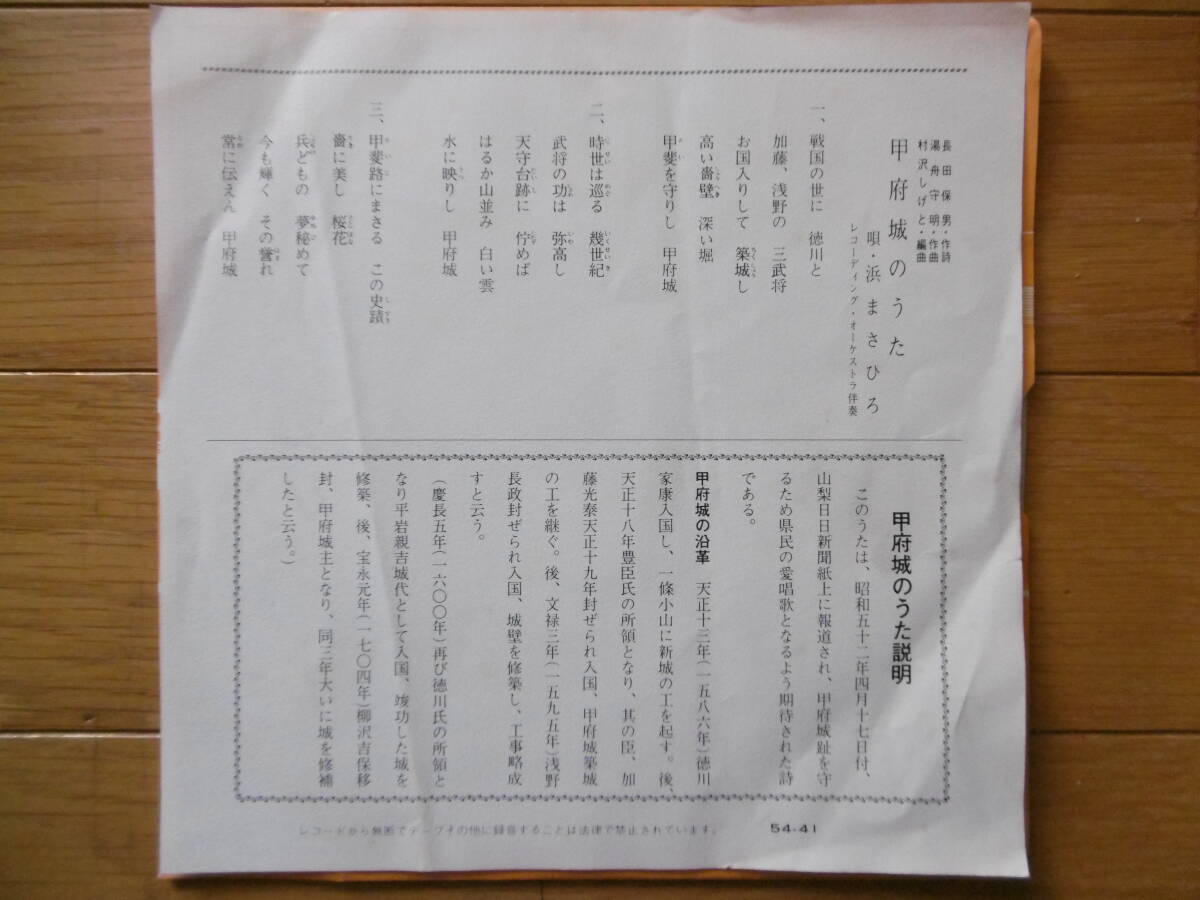 長田保男・作詩
湯舟守明・作曲
村沢しげと・編曲
甲府城のうた
唄・浜まさひろ
レコーディング・オーケストラ伴奏
一、戦国の世に 徳川と
加藤、浅野の 三武将
お国入りして 築城し
高い嗇壁 深い堀
甲斐を守りし 甲府城
二、時世は巡る 幾世紀
武将の功は 弥高し
天守台跡に 佇めば
はるか山並み 白い雲
水に映りし 甲府城
三、甲斐路にまさる この史蹟
嗇に美し 桜花
兵どもの 夢秘めて
今も輝く その誉れ
常に伝えん 甲府城
甲府城のうた説明
このうたは、昭和五十二年四月十七日付、
山梨日日新聞紙上に報道され、甲府城趾を守
るため県民の愛唱歌となるよう期待された詩
である。
甲府城の沿革 天正十三年(一五八六年)徳川
家康入国し、一條小山に新城の工を起す。後、
天正十八年豊臣氏の所領となり、其の臣、加
藤光泰天正十九年封ぜられ入国、甲府城築城
の工を継ぐ。後、文禄三年(一五九五年)浅野
長政封ぜられ入国、城壁を修築し、工事略成
すと云う。
(慶長五年(一六〇〇年)再び徳川氏の所領と
なり平岩親吉城代として入国、竣功した城を
修築、後、宝永元年(一七〇四年)柳沢吉保移
封、甲府城主となり、同三年大いに城を修補
したと云う。)
レコードから無断でテープその他に録音することは法律で禁止されています。
54-41